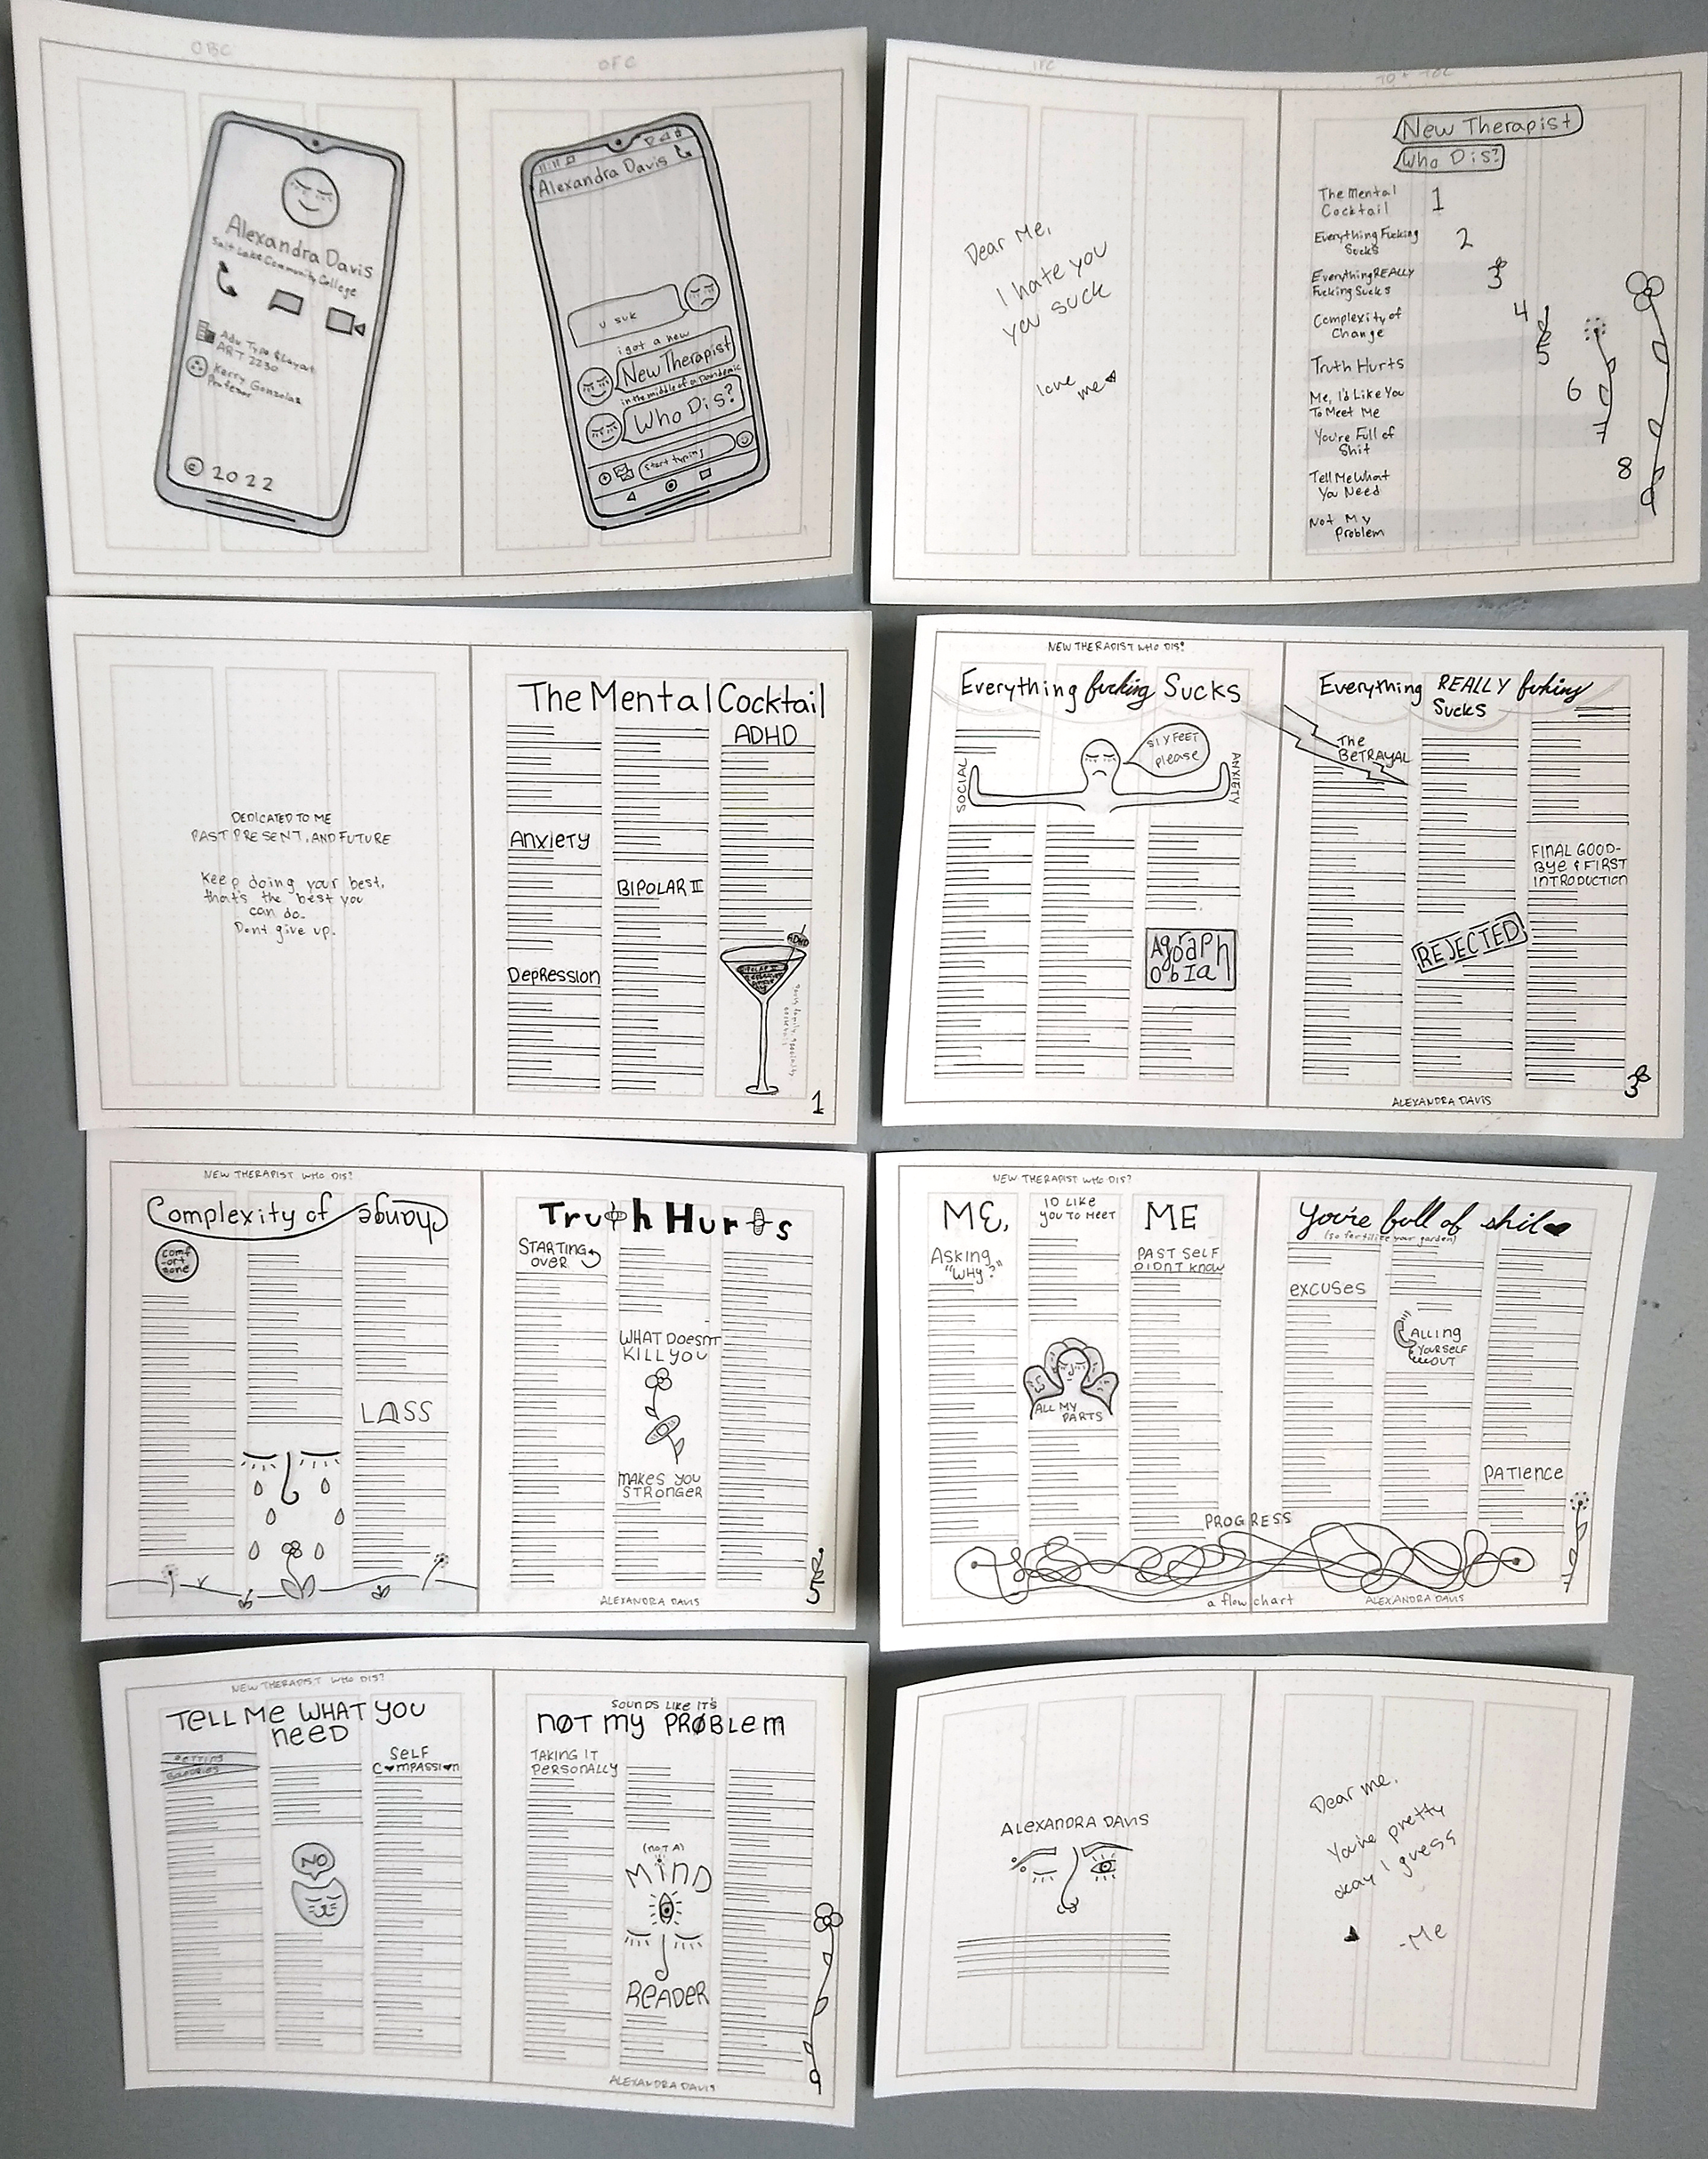 OBC
OFC
Alexandra Davis
Salt Lake Community College
Adv Type & Layout
ART 2230
Kerry Gonzalez
Professor
© 2022
11:11
Alexandra Davis
u suk
i got a new
New Therapist
in the middle of a pandemic
Who Dis?
start typing
IFC
Dear Me,
I hate you
you suck
love
me
New Therapist
Who Dis?
The Mental
Cocktail
1
Everything Fucking
Sucks
2
Everything REALLY
Fucking Sucks
3
Complexity of
Change
4
Truth Hurts
5
Me, I'd Like You
To Meet Me
6
You're Full of
Shit
Tell Me What
You Need
8
Not My
Problem
DEDICATED TO ME
PAST PRESENT, AND FUTURE
Keep doing your best,
that's the best you
can do.
Dont give up.
The Mental Cocktail
ADHD
Anxiety
BIPOLAR II
Depression
ADHD
1
NEW THERAPIST WHO DIS?
Everything fucking Sucks
SIX FEET
please
SOCIAL
ANXIETY
Agoraph
obIa
Everything REALLY fucking
Sucks
The
BETRAYAL
FINAL GOOD-
Bye & FIRST
INTRODUCTION
REJECTED
ALEXANDRA DAVIS
3
NEW THERAPIST WHO DIS?
Complexity of change
Comf
-ort
zone
LOSS
Truth Hurts
STARTING
OVER
WHAT DOESNT
KILL YOU
MAKES YOU
STRONGER
ALEXANDRA DAVIS
5
NEW THERAPIST WHO DIS?
ME,
ID LIKE
YOU TO MEET
ME
Asking
"WHY?"
PAST SELF
DIDNT KNOW
ALL MY
PARTS
You're full of shit
(so fertilize your garden)
excuses
CALLING
YOURSELF
OUT
PATIENCE
PROGRESS
a flow chart
ALEXANDRA DAVIS
NEW THERAPIST WHO DIS?
TELL ME WHAT YOU
NEED
SELF
COMPASSION
NO
SOUNDS LIKE IT'S
NOT MY PROBLEM
TAKING IT
PERSONALLY
(NOT A)
MIND
READER
ALEXANDRA DAVIS
ALEXANDRA DAVIS
Dear me,
You're pretty
okay I guess
-Me